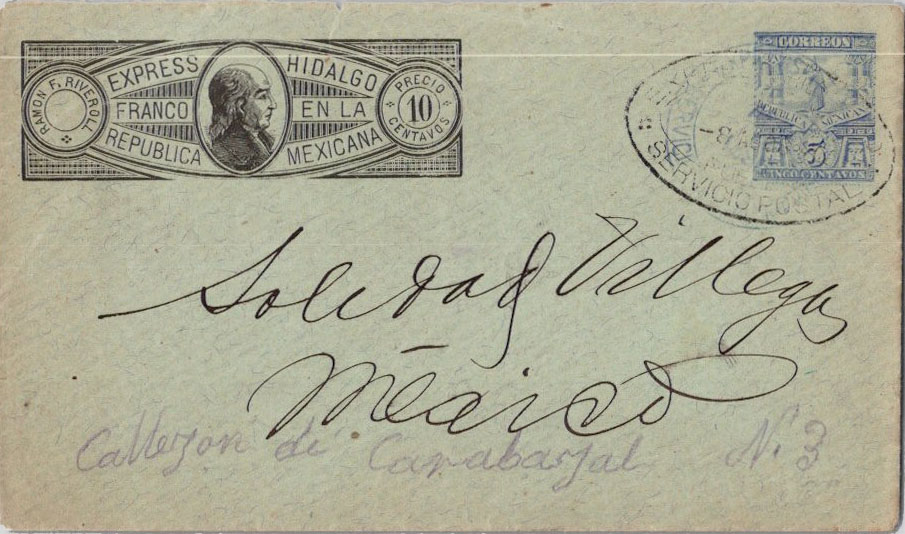 RAMON F. RIVEROLL
EXPRESS HIDALGO
FRANCO EN LA
REPUBLICA MEXICANA
PRECIO
10
CENTAVOS
CORREOS
REPUBLICA MEXICANA
5
CINCO CENTAVOS
SERVICIO POSTAL
Soledad Villegas
México
Callejon de Carabajal N. 3